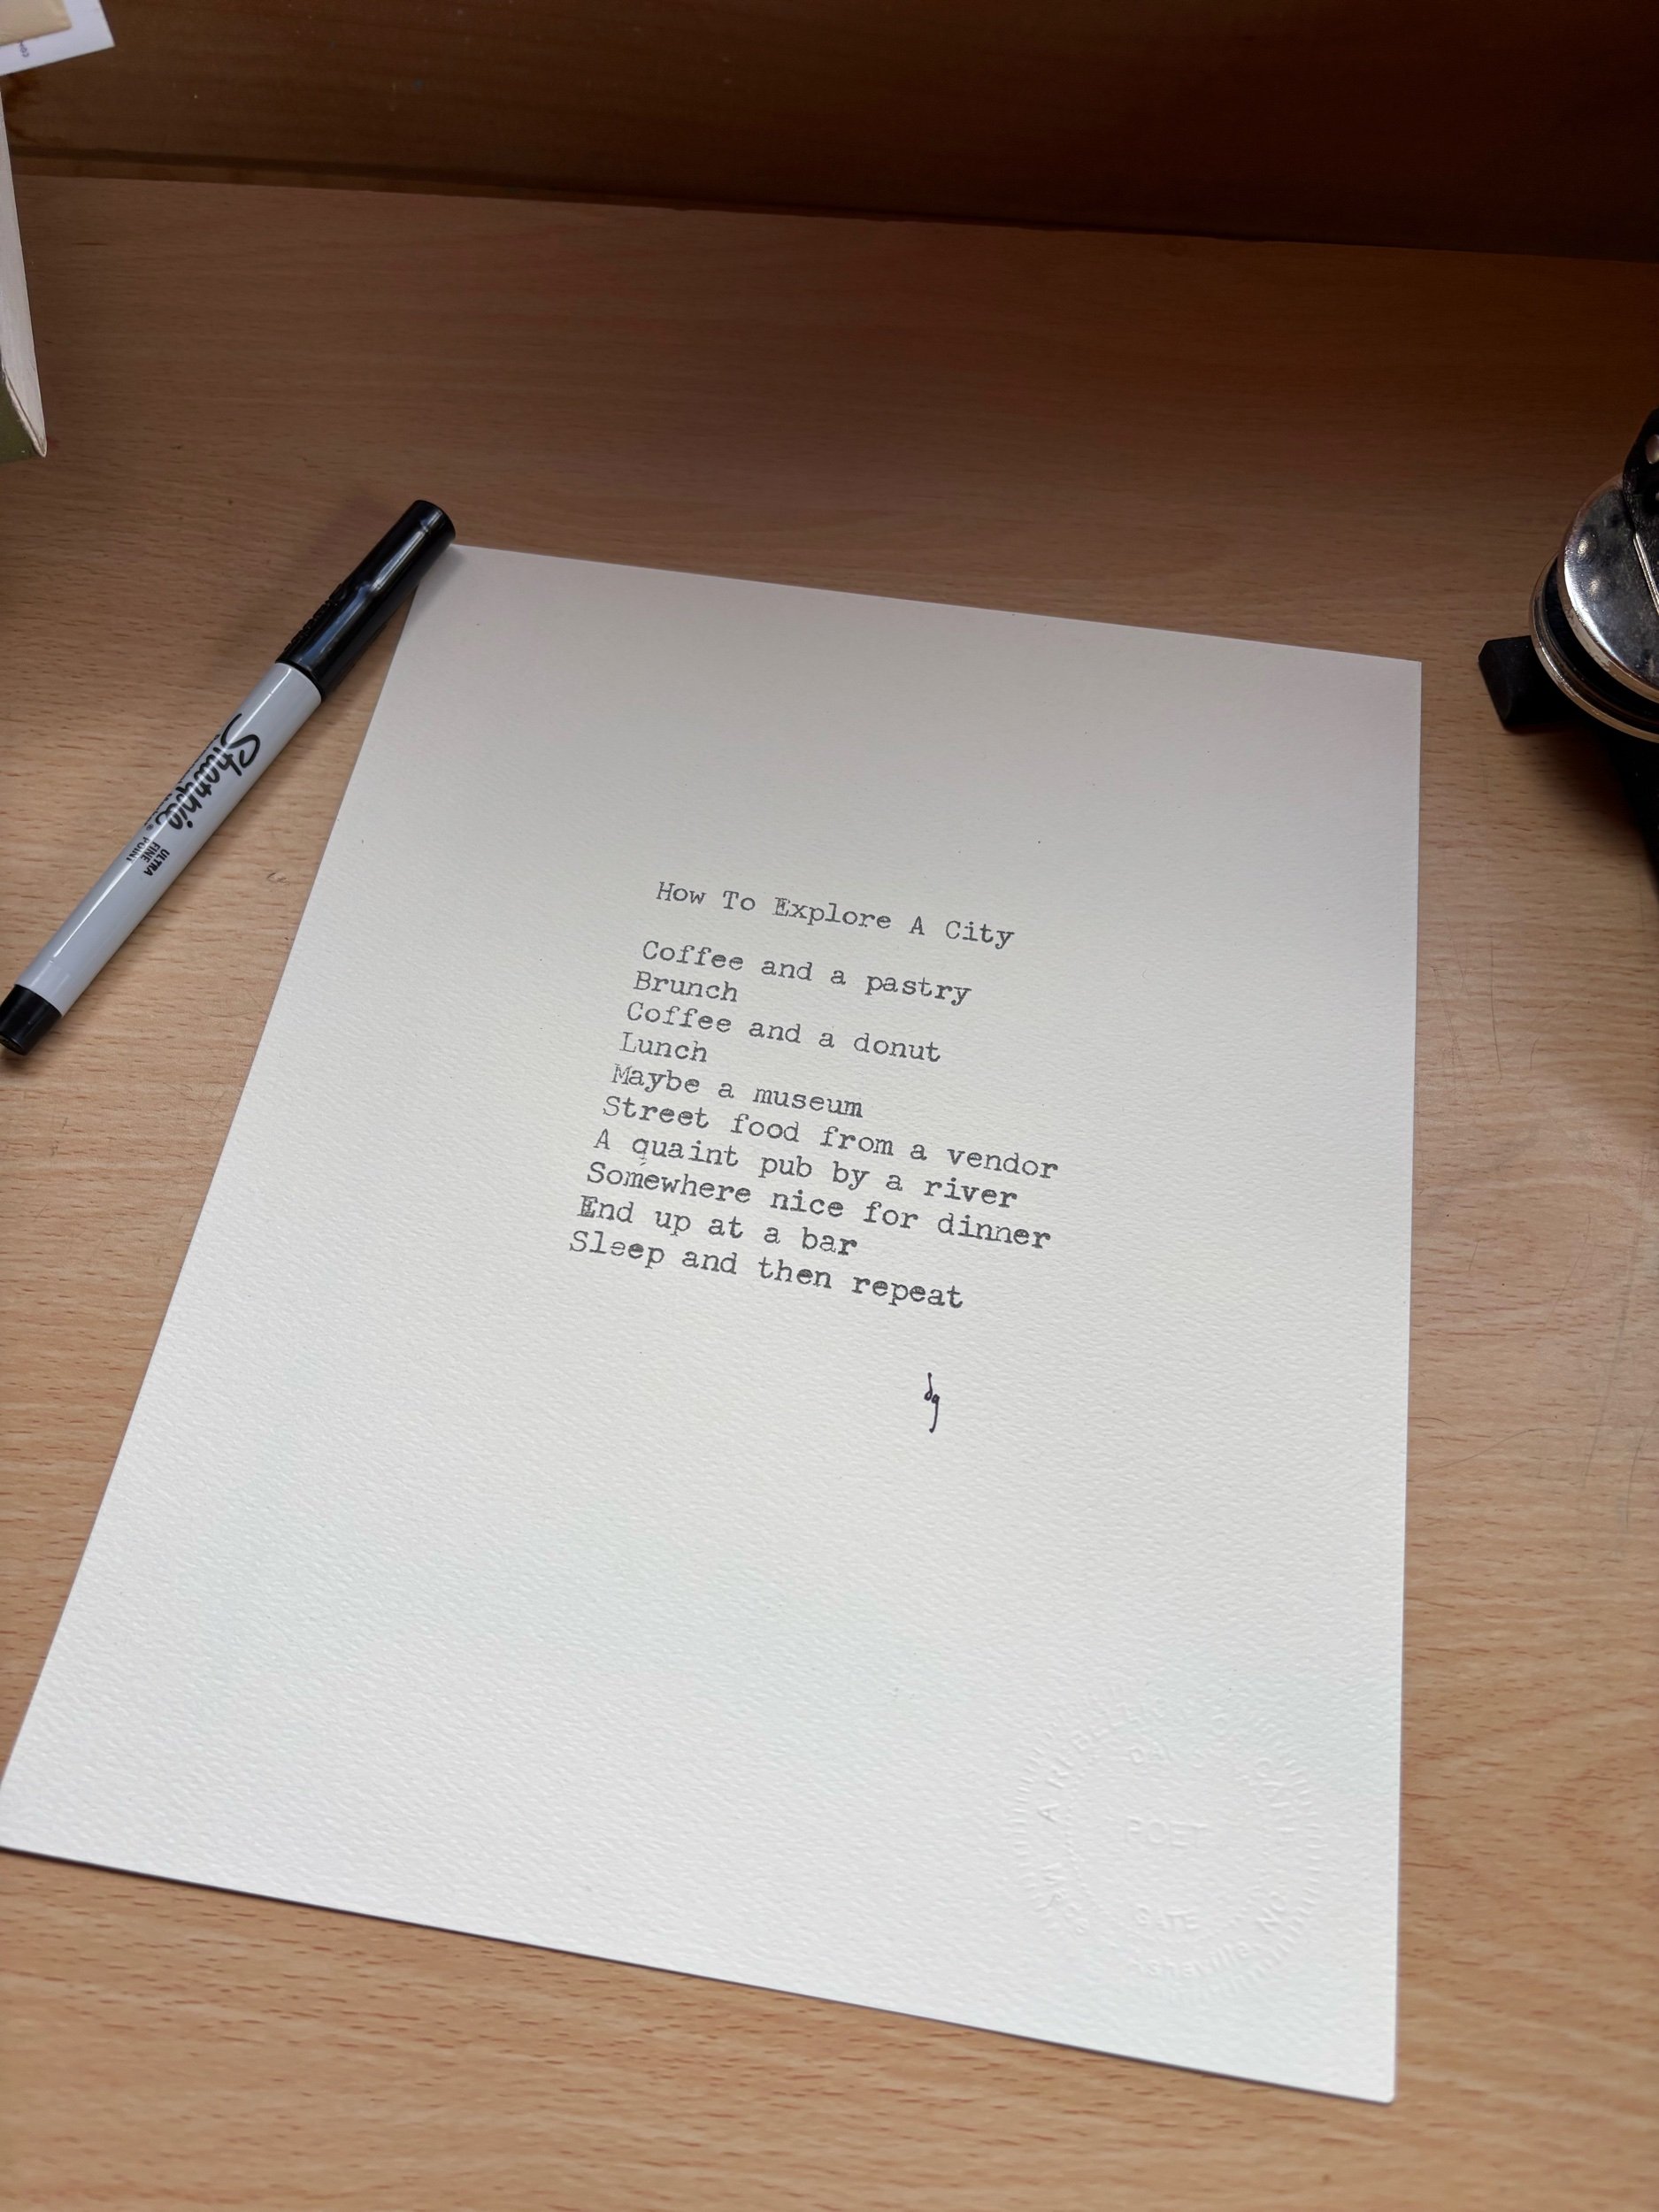 How To Explore A City
Coffee and a pastry
Brunch
Coffee and a donut
Lunch
Maybe a museum
Street food from a vendor
A quaint pub by a river
Somewhere nice for dinner
End up at a bar
Sleep and then repeat
dg
Sharpie
ULTRA
FINE
POINT
POET
Asheville NC